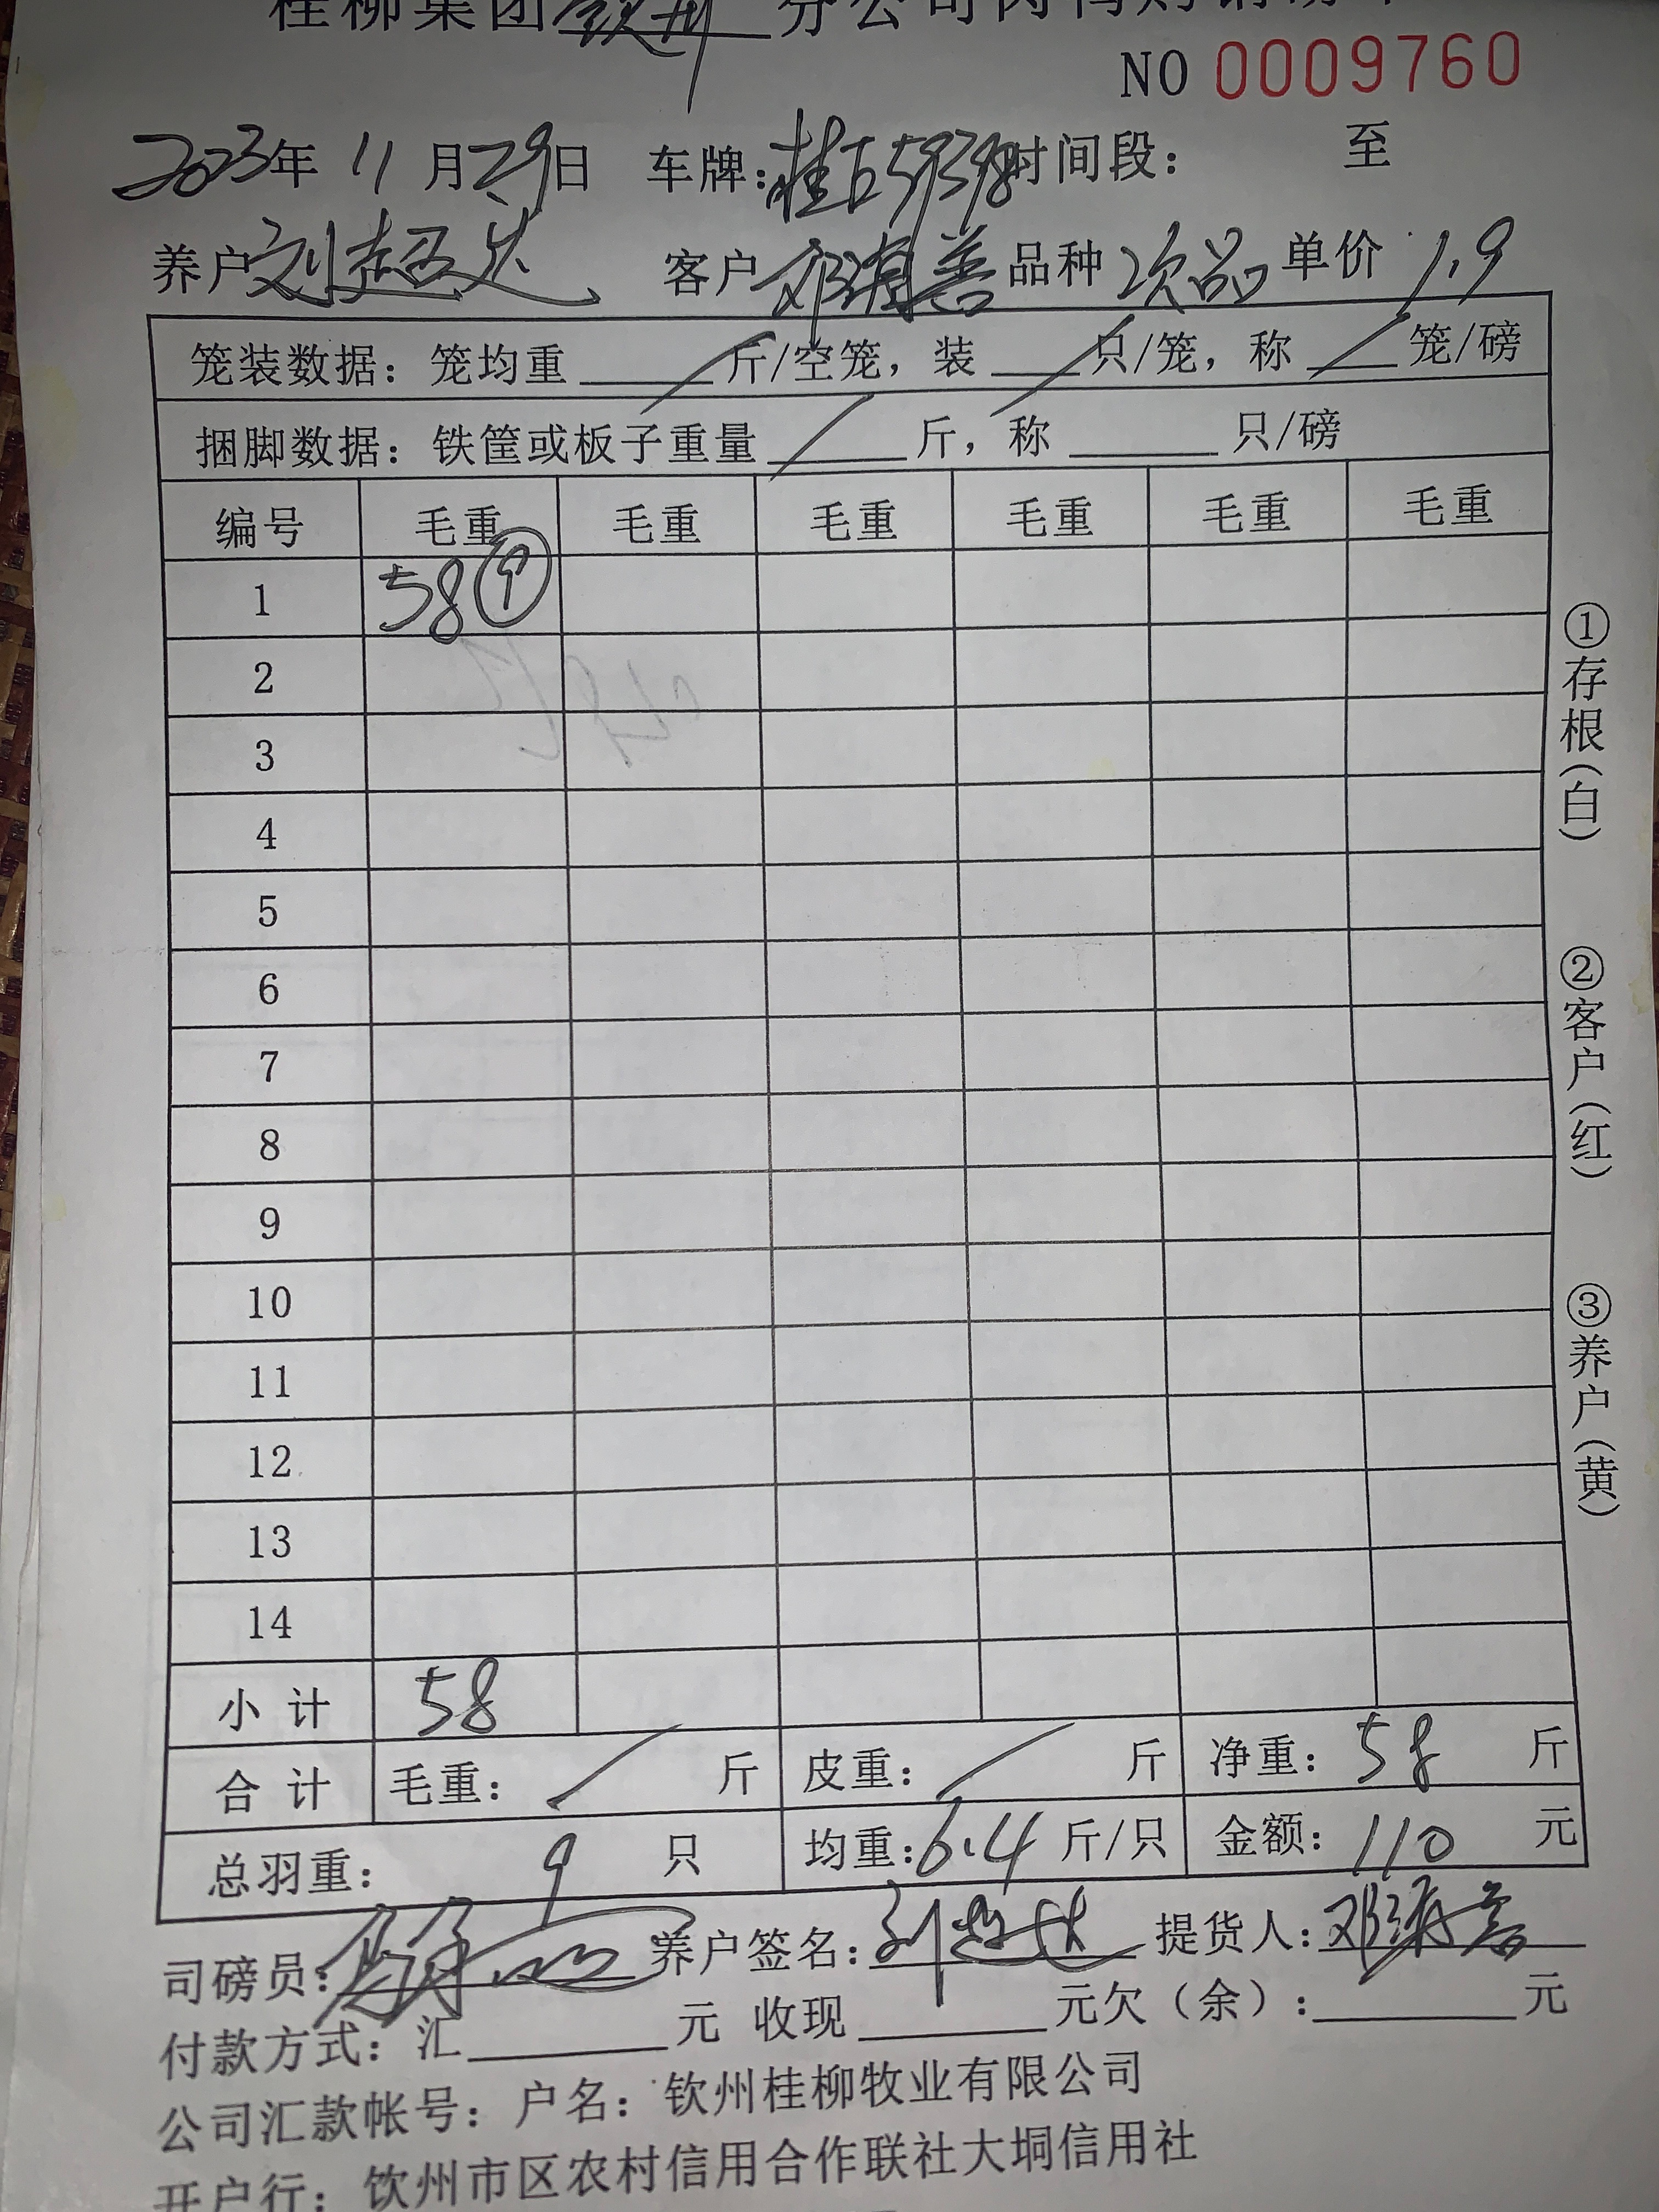 桂柳集团钦州分公司肉鸭购销磅单
NO 0009760
2023年 11月29日 车牌: 时间段: 至
养户刘超达 客户邓 善 品种 次品 单价 1.9
笼装数据: 笼均重____斤/空笼, 装____只/笼, 称____笼/磅
捆脚数据: 铁筐或板子重量____斤, 称____只/磅
编号 毛重 毛重 毛重 毛重 毛重 毛重
1 58 ⑨
2
3
4
5
6
7
8
9
10
11
12
13
14
小计 58
合计 毛重: / 斤 皮重: / 斤 净重: 58 斤
总羽重: 9 只 均重: 6.4 斤/只 金额: 110 元
①存根(白)
②客户(红)
③养户(黄)
司磅员: 养户签名: 刘超达 提货人: 邓 善
付款方式: 汇____元 收现____元欠(余):____元
公司汇款帐号: 户名: 钦州桂柳牧业有限公司
开户行: 钦州市区农村信用合作联社大垌信用社